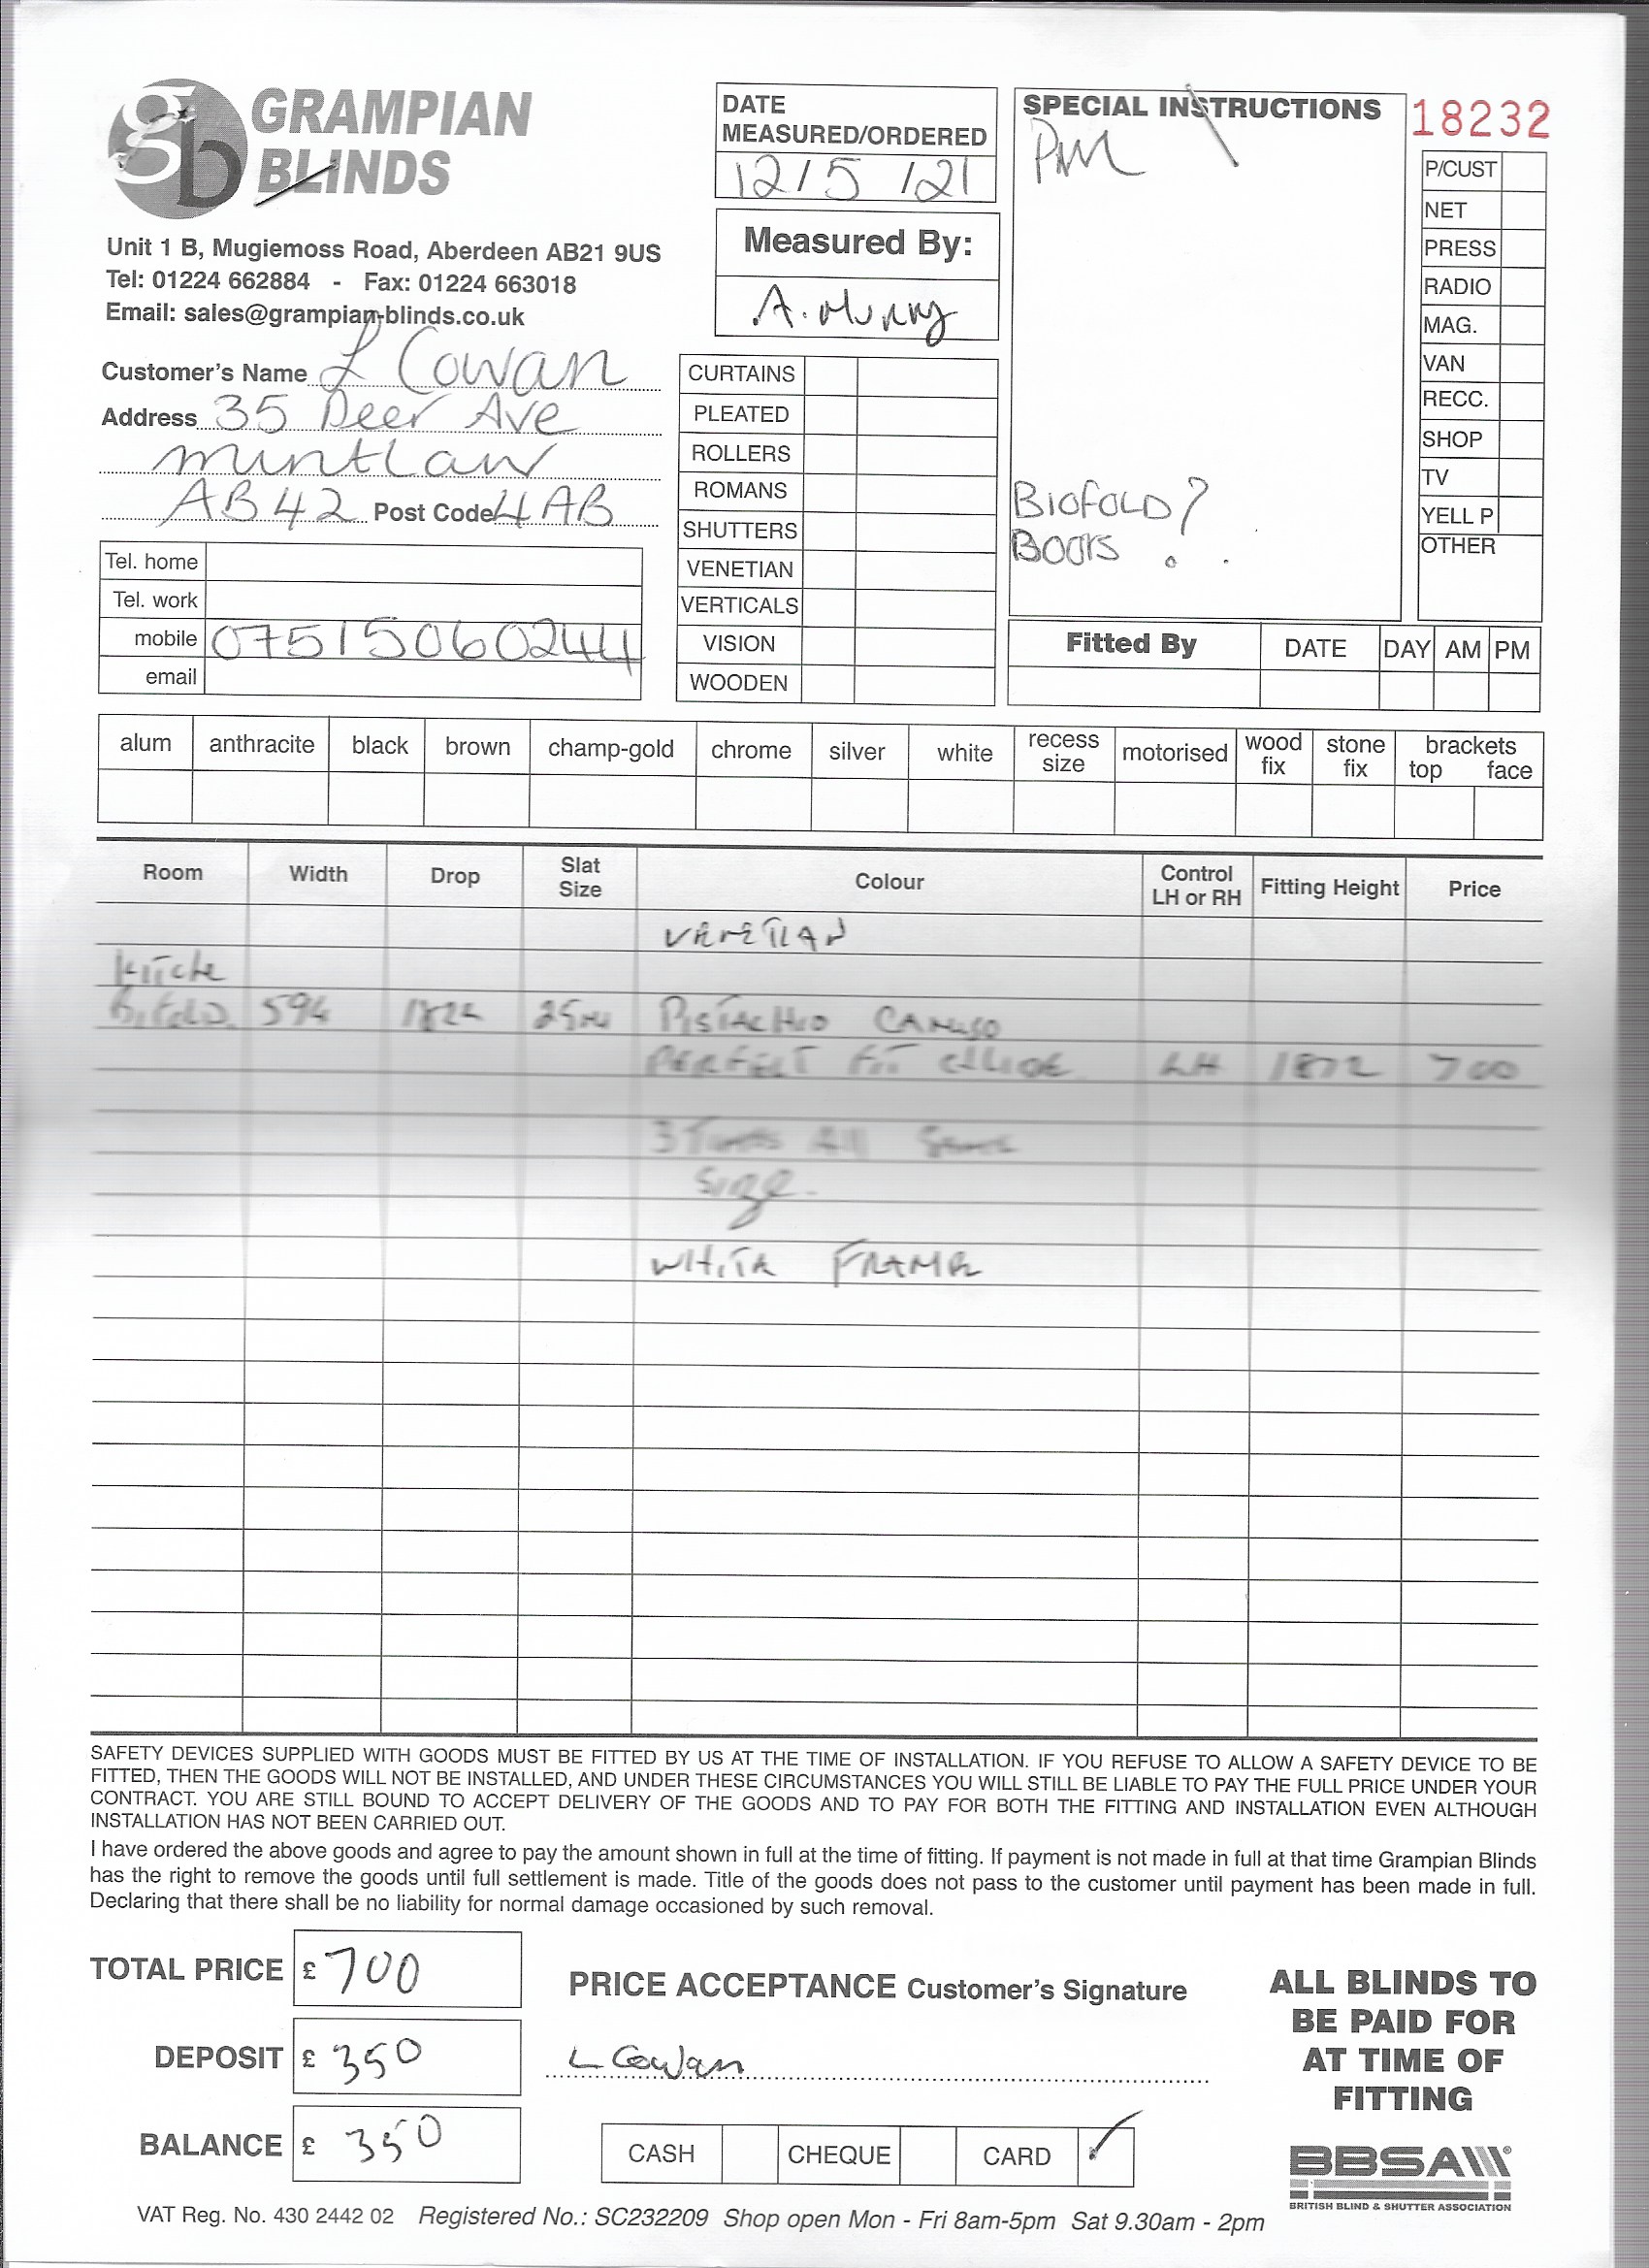 gb GRAMPIAN
BLINDS
Unit 1 B, Mugiemoss Road, Aberdeen AB21 9US
Tel: 01224 662884 - Fax: 01224 663018
Email: sales@grampian-blinds.co.uk
Customer's Name L Cowan
Address 35 Deer Ave
mintlaw
AB42 Post Code 4AB
Tel. home
Tel. work
mobile 07515060244
email
DATE
MEASURED/ORDERED
12/5/21
Measured By:
A. Murray
CURTAINS
PLEATED
ROLLERS
ROMANS
SHUTTERS
VENETIAN
VERTICALS
VISION
WOODEN
SPECIAL INSTRUCTIONS
PM
BIOFOLD?
18232
P/CUST
NET
PRESS
RADIO
MAG.
VAN
RECC.
SHOP
TV
YELL P
OTHER
Fitted By DATE DAY AM PM
alum anthracite black brown champ-gold chrome silver white recess size motorised wood fix stone fix brackets top face
Room Width Drop Slat Size Colour Control LH or RH Fitting Height Price
VENETIAN
594 25mm PISTACHIO
PERFECT FIT LH 1872 700
3 All Same
Size.
WHITE FRAME
SAFETY DEVICES SUPPLIED WITH GOODS MUST BE FITTED BY US AT THE TIME OF INSTALLATION. IF YOU REFUSE TO ALLOW A SAFETY DEVICE TO BE
FITTED, THEN THE GOODS WILL NOT BE INSTALLED, AND UNDER THESE CIRCUMSTANCES YOU WILL STILL BE LIABLE TO PAY THE FULL PRICE UNDER YOUR
CONTRACT. YOU ARE STILL BOUND TO ACCEPT DELIVERY OF THE GOODS AND TO PAY FOR BOTH THE FITTING AND INSTALLATION EVEN ALTHOUGH
INSTALLATION HAS NOT BEEN CARRIED OUT.
I have ordered the above goods and agree to pay the amount shown in full at the time of fitting. If payment is not made in full at that time Grampian Blinds
has the right to remove the goods until full settlement is made. Title of the goods does not pass to the customer until payment has been made in full.
Declaring that there shall be no liability for normal damage occasioned by such removal.
TOTAL PRICE £ 700
DEPOSIT £ 350
BALANCE £ 350
PRICE ACCEPTANCE Customer's Signature
L Cowan
CASH CHEQUE CARD ✓
ALL BLINDS TO
BE PAID FOR
AT TIME OF
FITTING
BBSA
BRITISH BLIND & SHUTTER ASSOCIATION
VAT Reg. No. 430 2442 02 Registered No.: SC232209 Shop open Mon - Fri 8am-5pm Sat 9.30am - 2pm